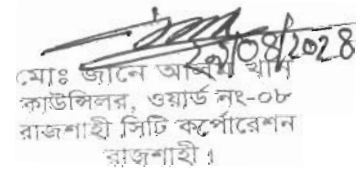 ২২/০৪/২০২৪
মোঃ জানে আলম খান
কাউন্সিলর, ওয়ার্ড নং-০৮
রাজশাহী সিটি কর্পোরেশন
রাজশাহী।